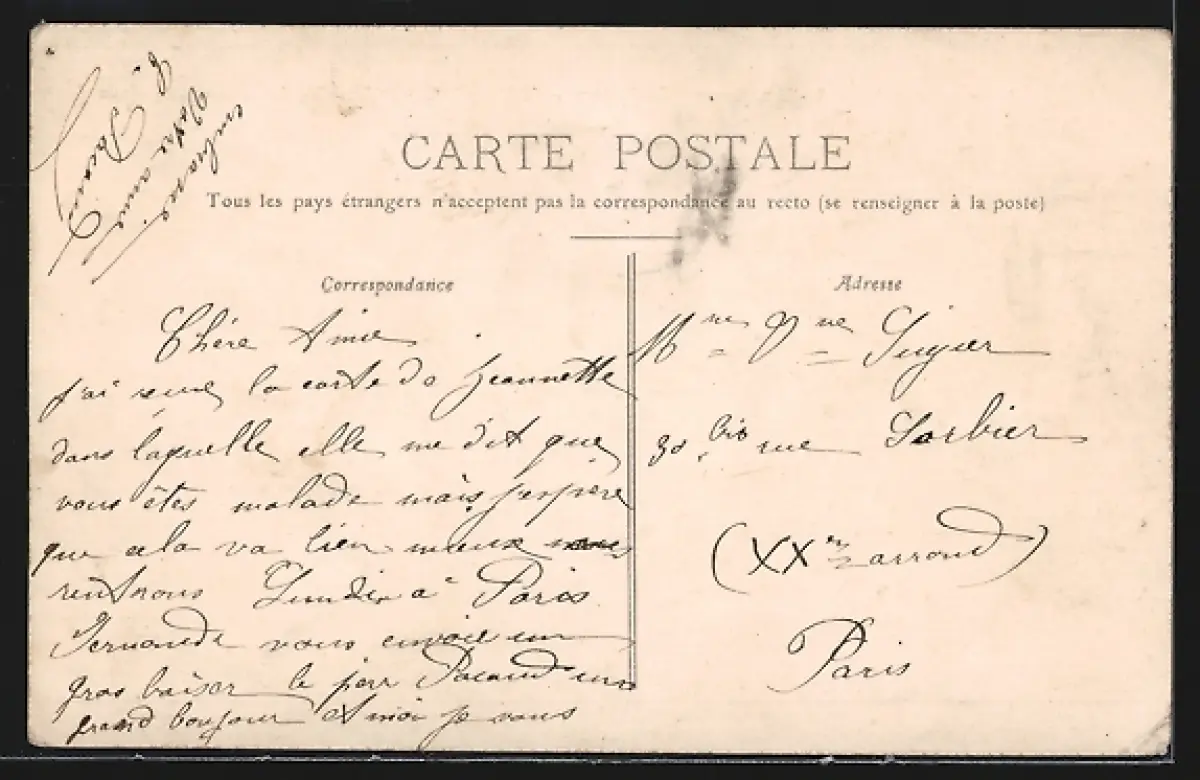 CARTE POSTALE
Tous les pays étrangers n'acceptent pas la correspondance au recto (se renseigner à la poste)
Correspondance
Chére Amie
j'ai reçue la carte de Jeannette
dans laquelle elle me dit que
vous êtes malade mais j'espère
que cela va bien mieux nous
rentrons Lundi à Paris
Fernande vous envoie un
gros baiser le père Pacaud un
grand bonjour et moi je vous
embrasse
Votre amie
Pacaud
Adresse
Mme Vve
30 bis rue Sorbier
(XXme arrond)
Paris